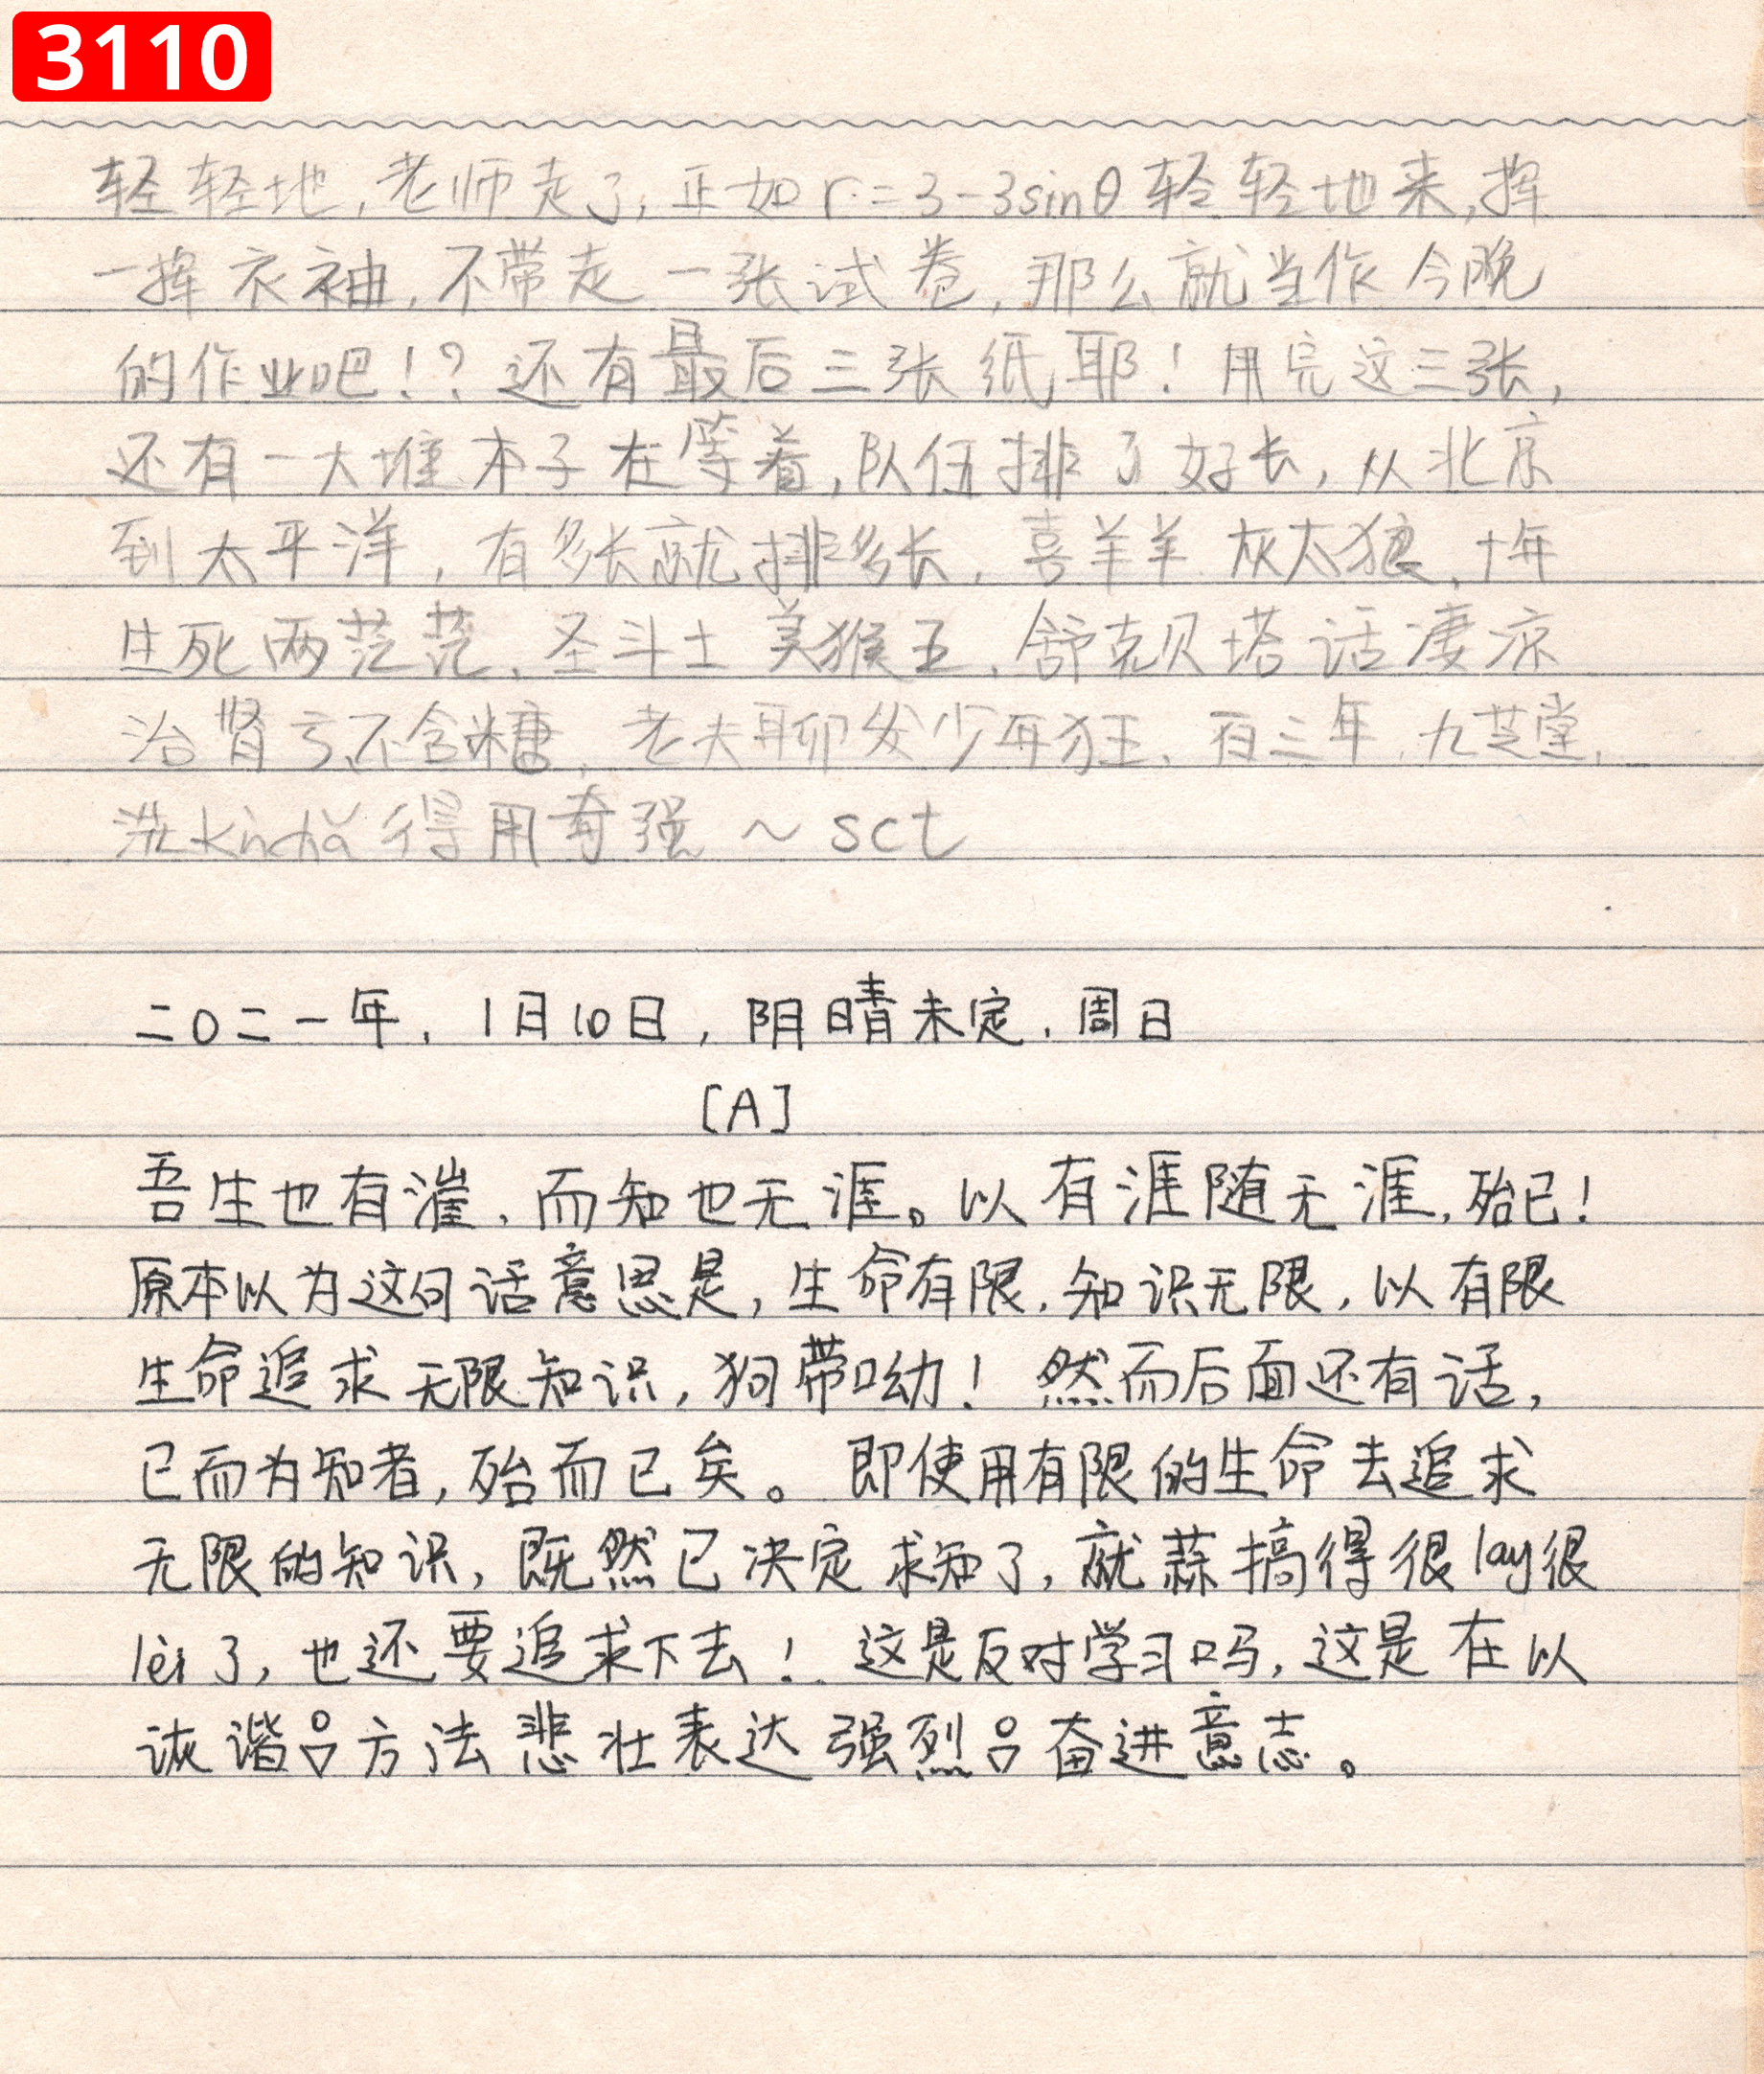 3110
轻轻地,老师走了,正如r=3-3sinθ轻轻地来,挥
一挥衣袖,不带走一张试卷,那么就当作今晚
的作业吧!?还有最后三张纸耶!用完这三张,
还有一大堆本子在等着,队伍排了好长,从北京
到太平洋,有多长就排多长,喜羊羊灰太狼,十年
生死两茫茫,圣斗士美猴王,舒克贝塔话凄凉
治肾亏不含糖,老夫聊发少年狂,夜三年,九芝堂,
洗 得用奇强~sct
二〇二一年,1月10日,阴晴未定,周日
[A]
吾生也有漄,而知也无涯。以有涯随无涯,殆已!
原本以为这句话意思是,生命有限,知识无限,以有限
生命追求无限知识,狗带呦!然而后面还有话,
已而为知者,殆而已矣。即使用有限的生命去追求
无限的知识,既然已决定求知了,就蒜搞得很lay很
lèi了,也还要追求下去!这是反对学习吗,这是在以
诙谐吕方法悲壮表达强烈吕奋进意志。